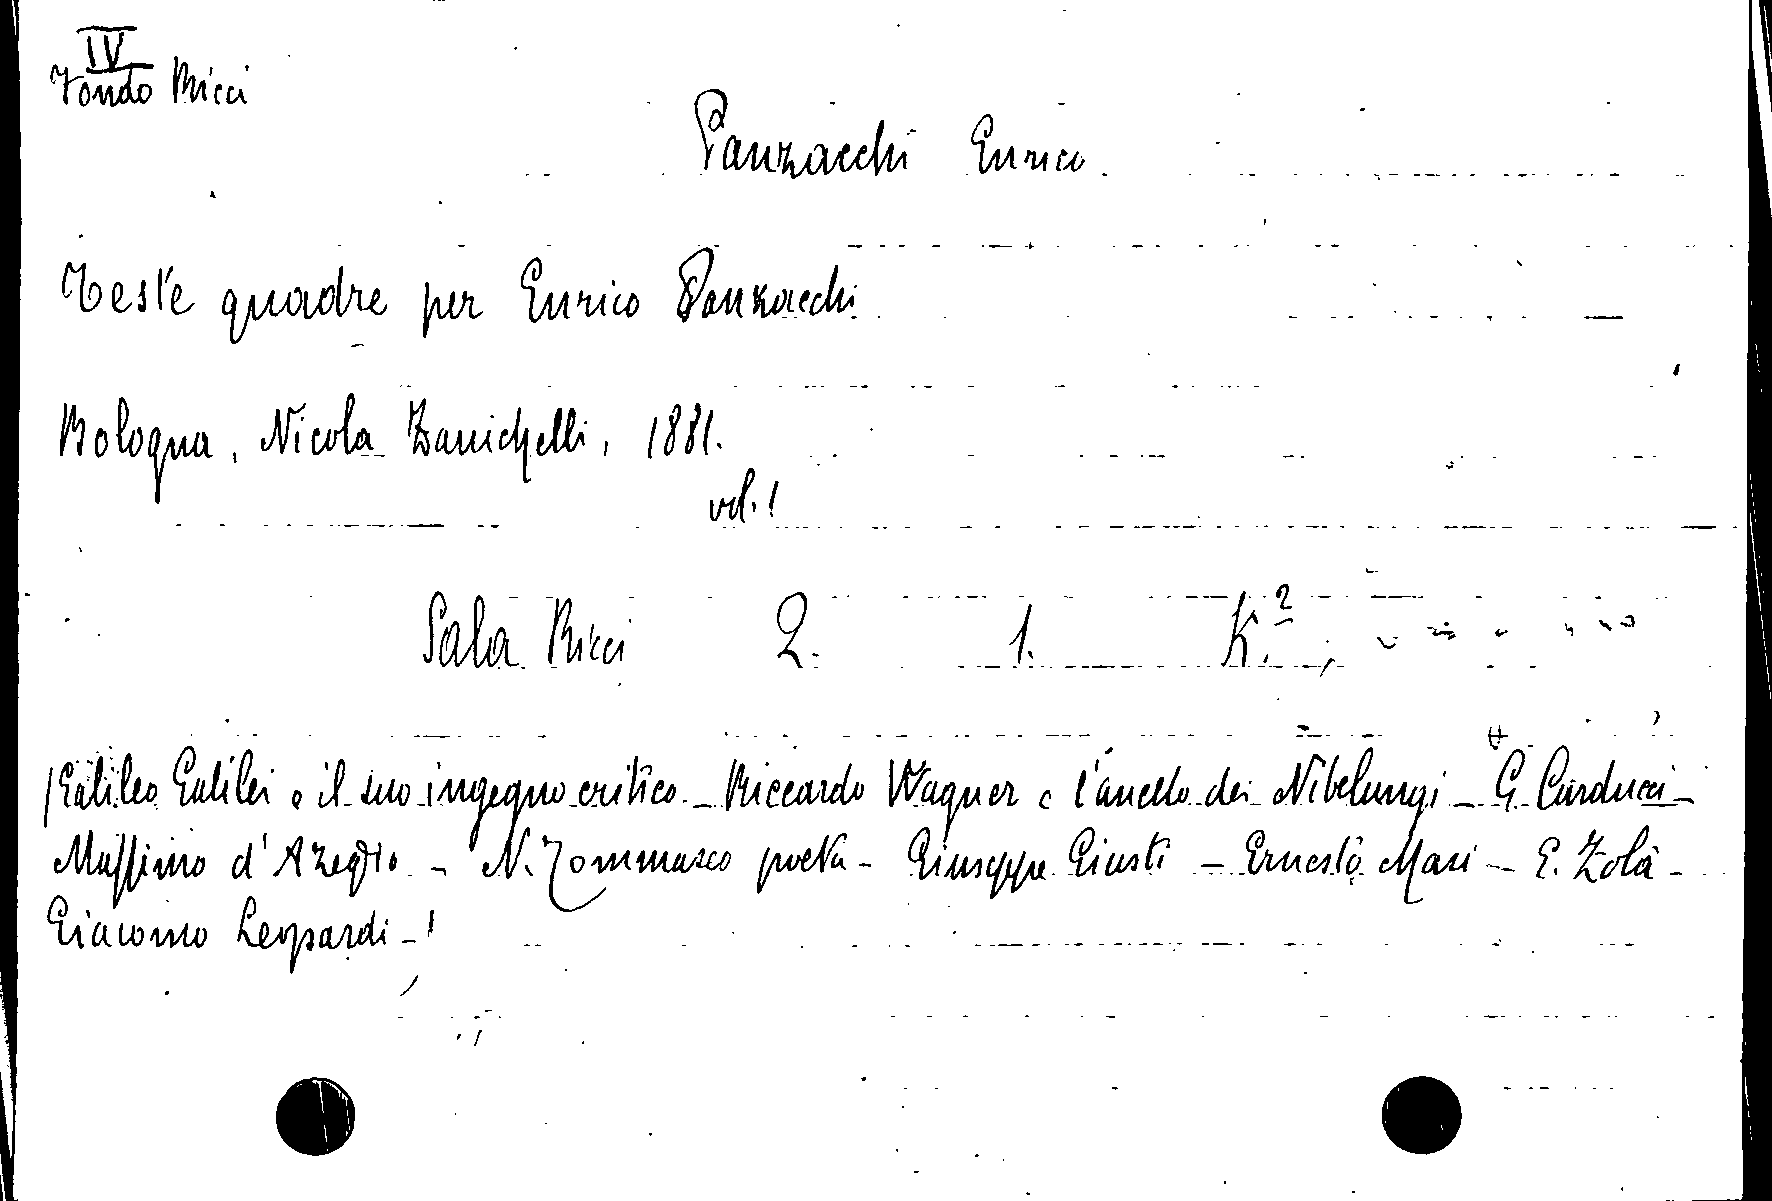 IV
Fondo Ricci
Panzacchi Enrico
Teste quadre per Enrico Panzacchi
Bologna, Nicola Zanichelli, 1881.
vol. 1
Sala Ricci 2. 1. K.²
(Galileo Galilei e il suo ingegno critico - Riccardo Wagner e l'anello dei Nibelungi - G. Carducci -
Massimo d'Azeglio - N. Tommaseo poeta - Giuseppe Giusti - Ernesto Masi - E. Zola -
Giacomo Leopardi - )